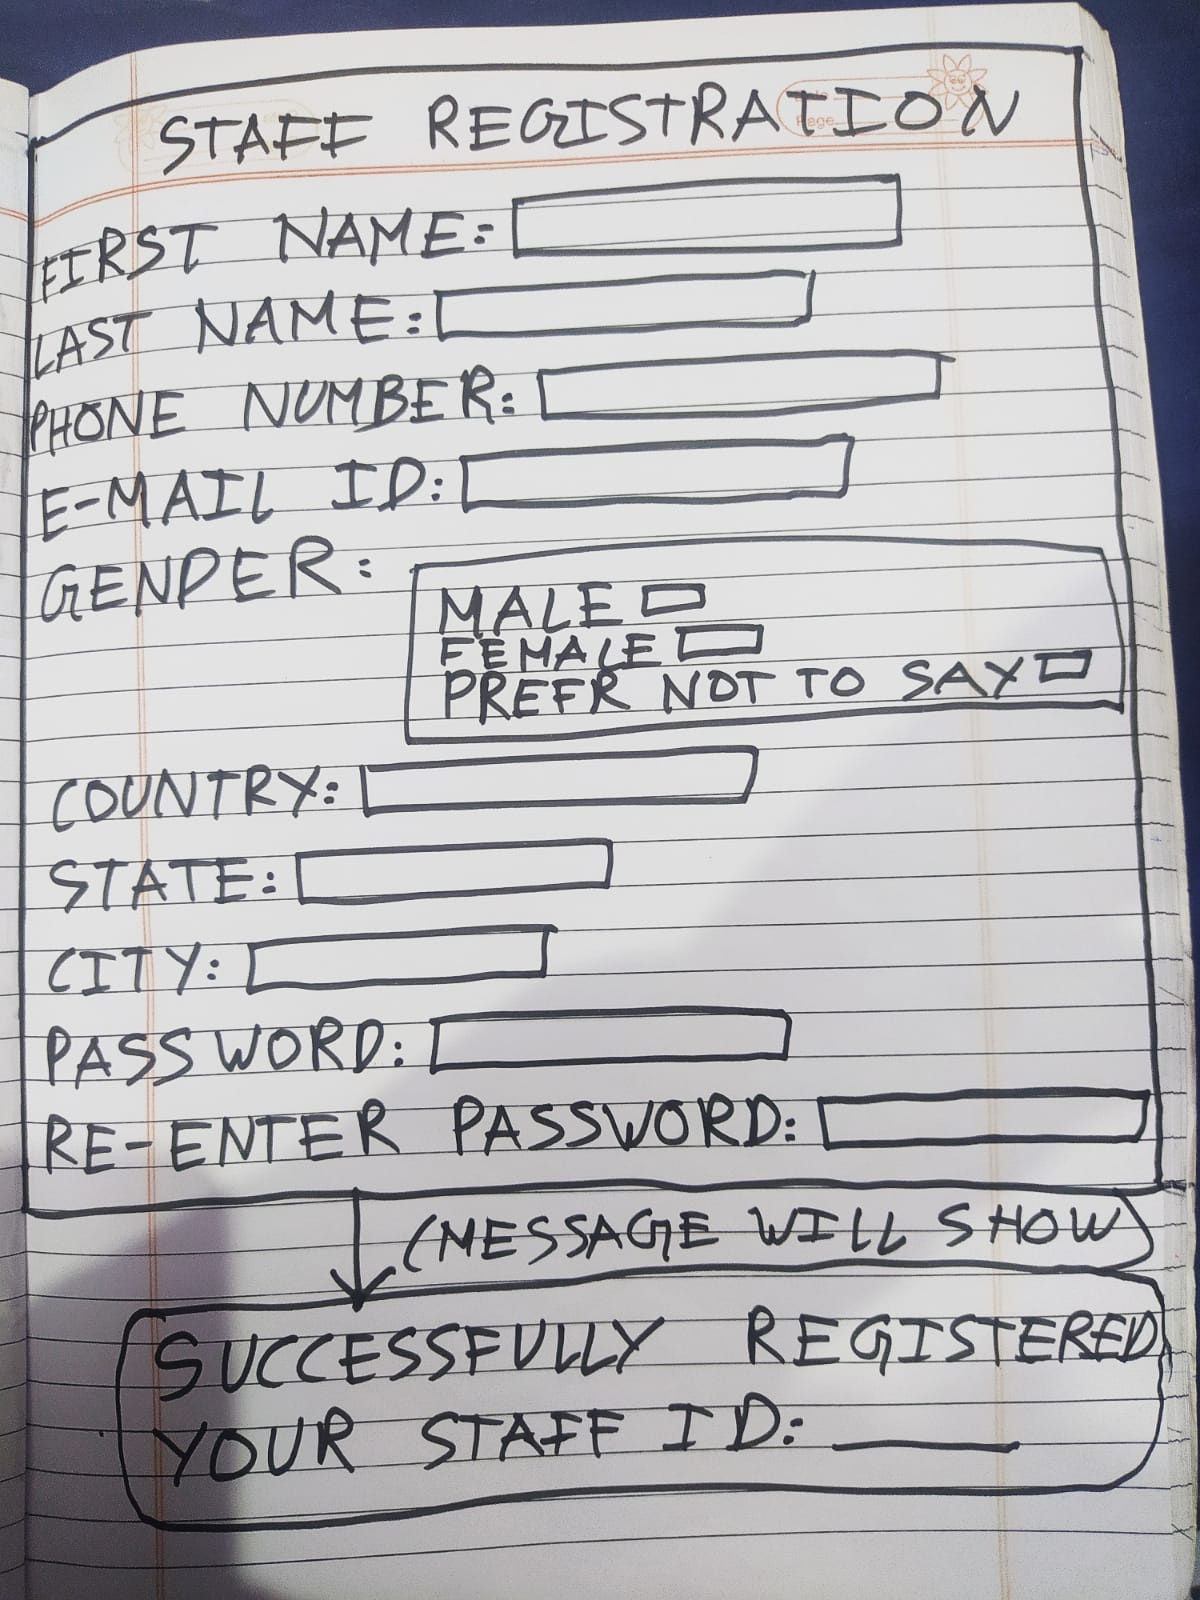 STAFF REGISTRATION
FIRST NAME:
LAST NAME:
PHONE NUMBER:
E-MAIL ID:
GENDER:
MALE
FEMALE
PREFR NOT TO SAY
COUNTRY:
STATE:
CITY:
PASSWORD:
RE-ENTER PASSWORD:
(MESSAGE WILL SHOW)
SUCCESSFULLY REGISTERED
YOUR STAFF ID: